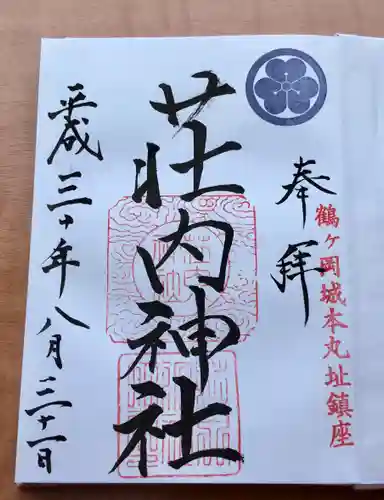 鶴ヶ岡城本丸址鎮座
奉拝
荘内神社
平成三十年八月三十一日